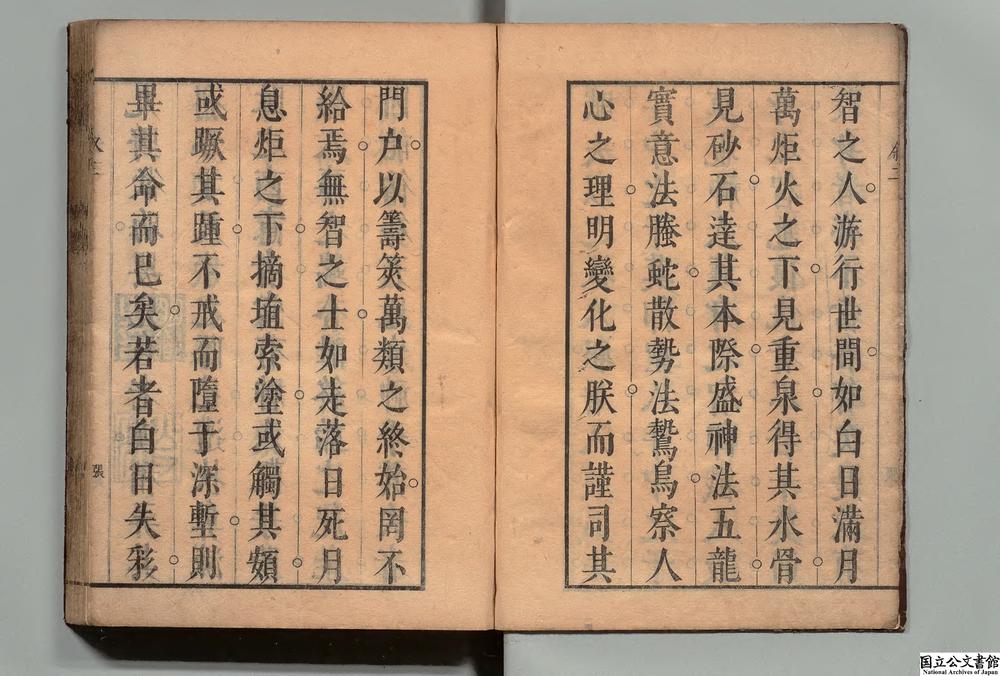 智之人游行世間如白日滿月
萬炬火之下見重泉得其水骨
見砂石達其本際盛神法五龍
實意法螣蛇散勢法鷙鳥察人
心之理明變化之朕而謹司其
門户以籌筴萬類之終始罔不
給焉無智之士如走落日死月
息炬之下摘埴索塗或觸其頞
或蹶其踵不戒而墮于深塹則
畢其命而巳矣若者白日失彩
張
国立公文書館
National Archives of Japan